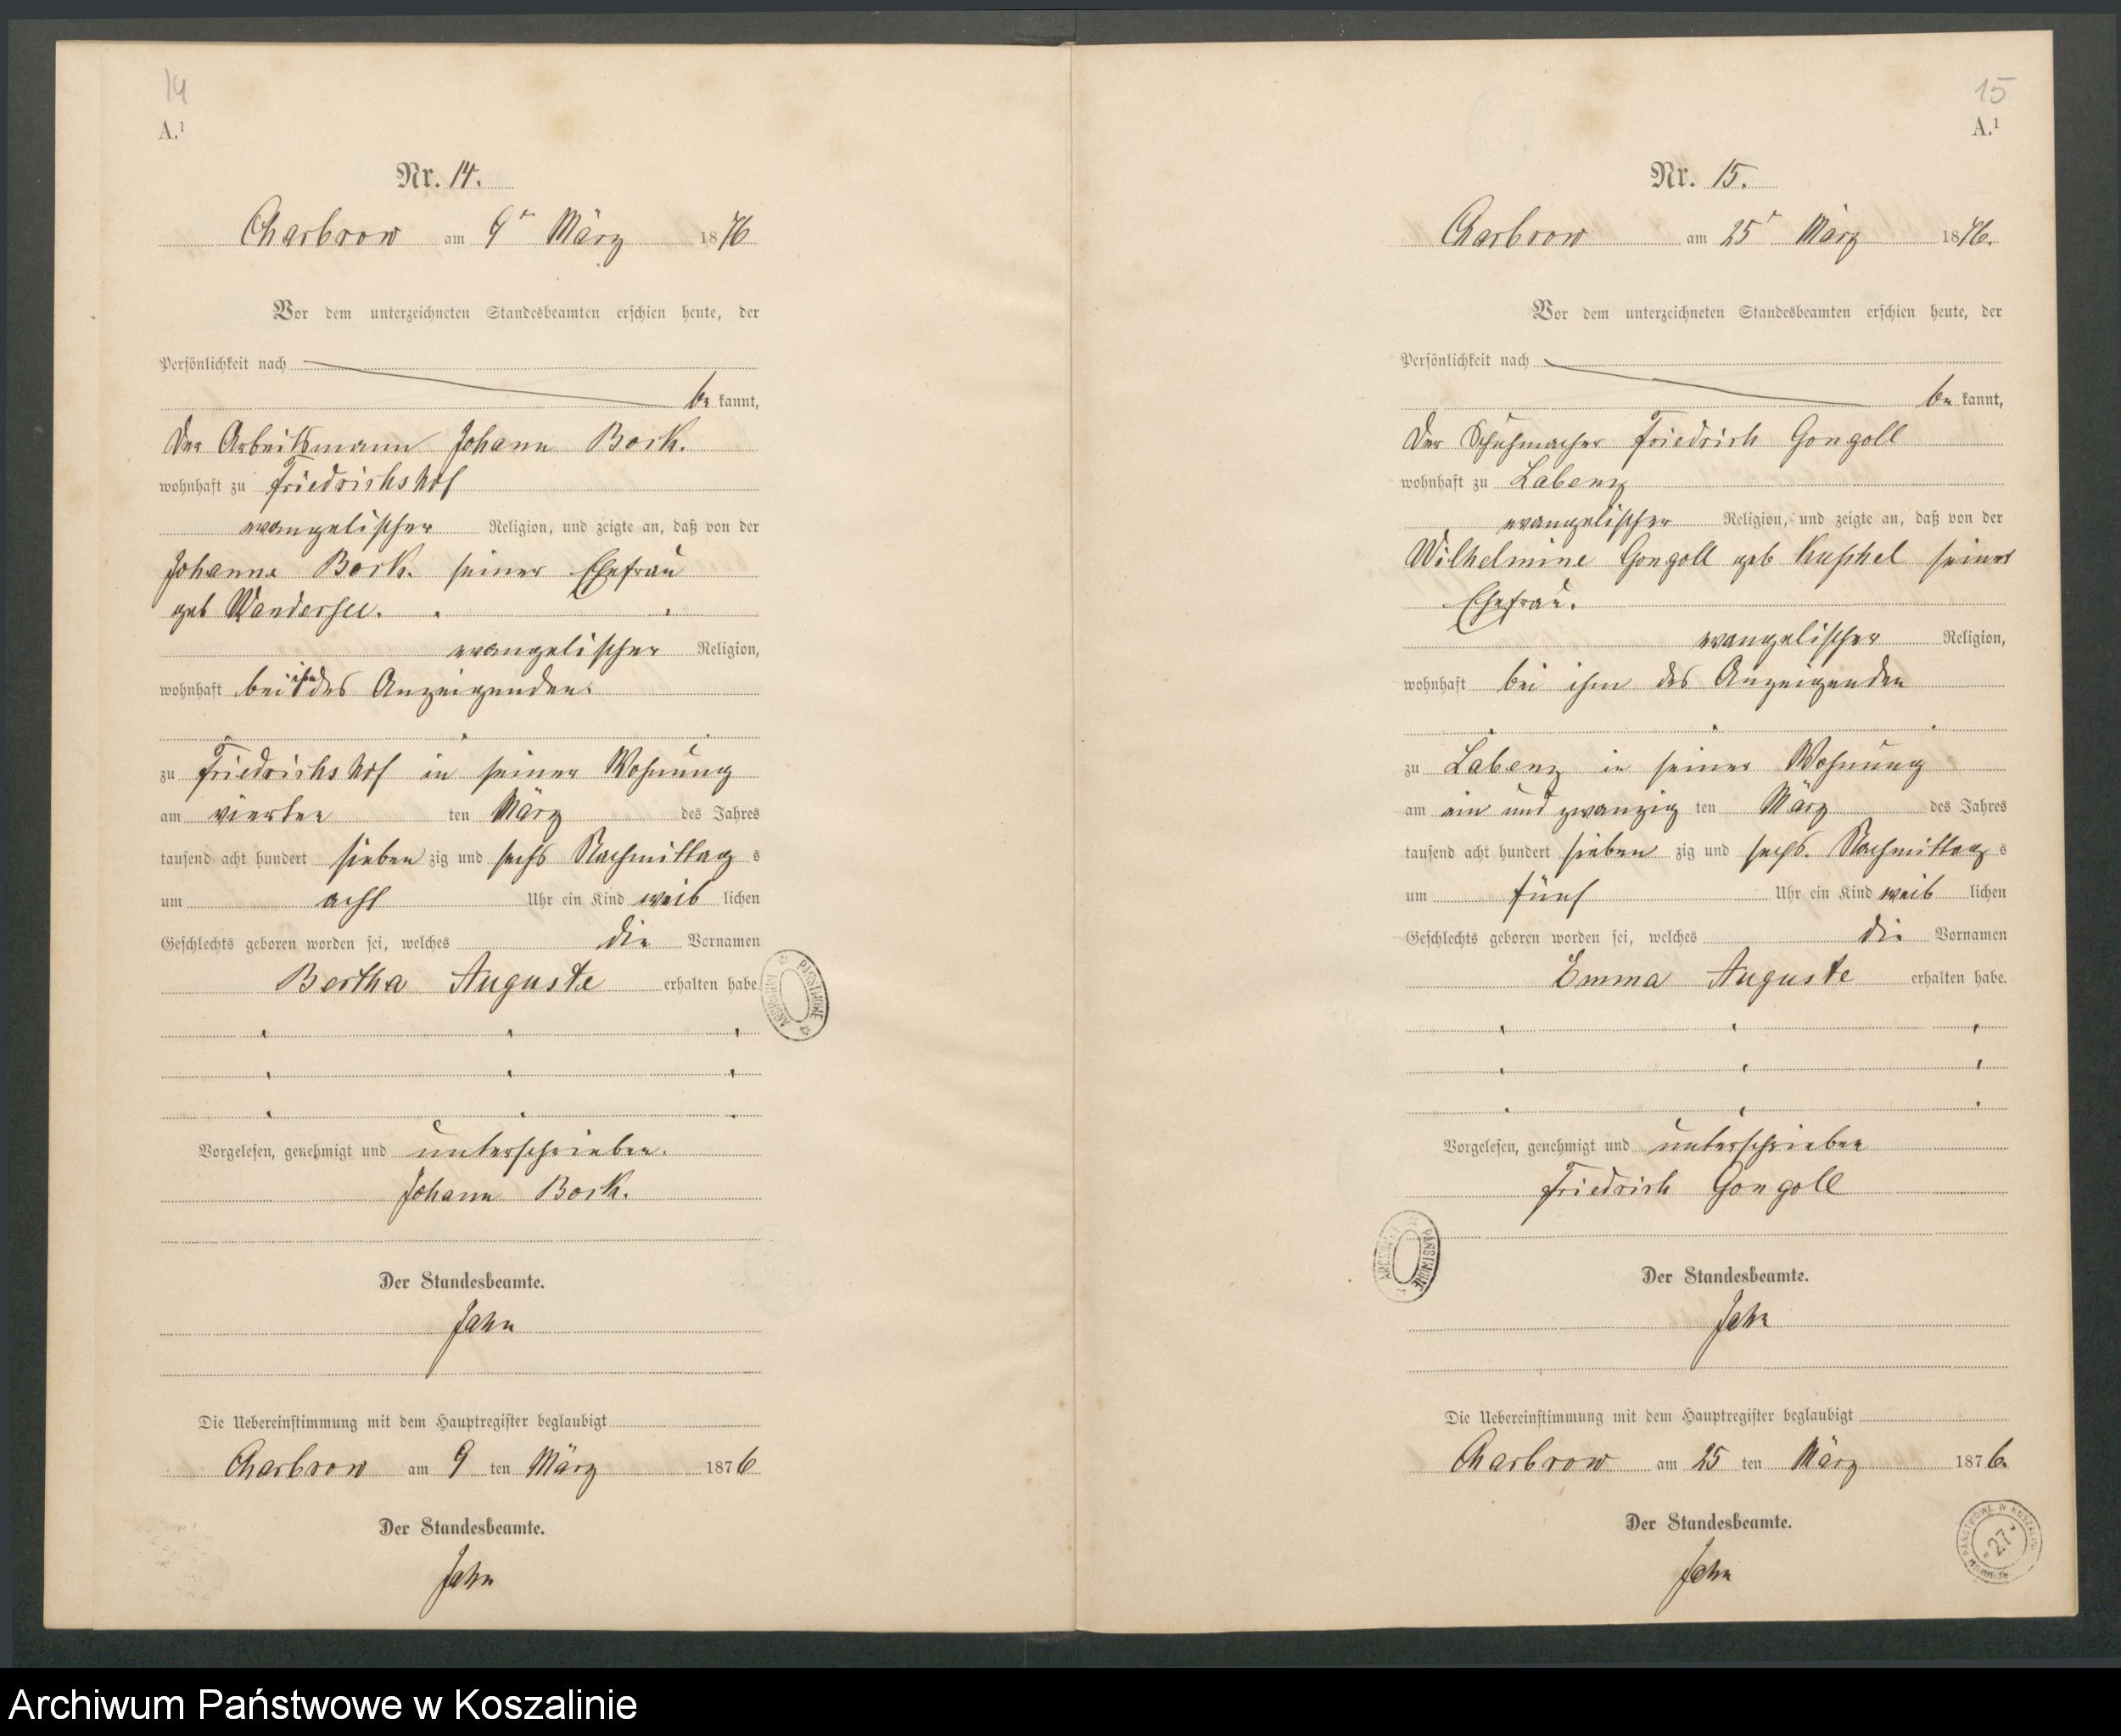 14
A.¹
Nr. 14.
Charbrow am 9ᵗ März 1876
Vor dem unterzeichneten Standesbeamten erschien heute, der
Persönlichkeit nach
be kannt,
der Arbeitsmann Johann Bock.
wohnhaft zu Friedrichshof
evangelischer Religion, und zeigte an, daß von der
Johanne Bock. seiner Ehefrau
geb Wandersee.
evangelischer Religion,
wohnhaft bei ihm des Anzeigenden.
zu Friedrichshof in seiner Wohnung
am vierten ten März des Jahres
tausend acht hundert sieben zig und sechs Nachmittag s
um acht Uhr ein Kind weib lichen
Geschlechts geboren worden sei, welches die Vornamen
Bertha Auguste erhalten habe.
ARCHIWUM PAŃSTWOWE
Vorgelesen, genehmigt und unterschrieben.
Johann Bock.
Der Standesbeamte.
Jahn
Die Uebereinstimmung mit dem Hauptregister beglaubigt
Charbrow am 9 ten März 1876
Der Standesbeamte.
Jahn
15
A.¹
Nr. 15.
Charbrow am 25ᵗ März 1876.
Vor dem unterzeichneten Standesbeamten erschien heute, der
Persönlichkeit nach
be kannt,
der Schuhmacher Friedrich Gongoll
wohnhaft zu Labenz
evangelischer Religion, und zeigte an, daß von der
Wilhelmine Gongoll geb Kuschel seiner
Ehefrau.
evangelischer Religion,
wohnhaft bei ihm des Anzeigenden
zu Labenz in seiner Wohnung
am ein und zwanzig ten März des Jahres
tausend acht hundert sieben zig und sechs. Nachmittag s
um fünf Uhr ein Kind weib lichen
Geschlechts geboren worden sei, welches die Vornamen
Emma Auguste erhalten habe.
Vorgelesen, genehmigt und unterschrieben
Friedrich Gongoll
ARCHIWUM PAŃSTWOWE
Der Standesbeamte.
Jahn
Die Uebereinstimmung mit dem Hauptregister beglaubigt
Charbrow am 25 ten März 1876.
Der Standesbeamte.
Jahn
ARCHIWUM PAŃSTWOWE W KOSZALINIE
27
Archiwum Państwowe w Koszalinie